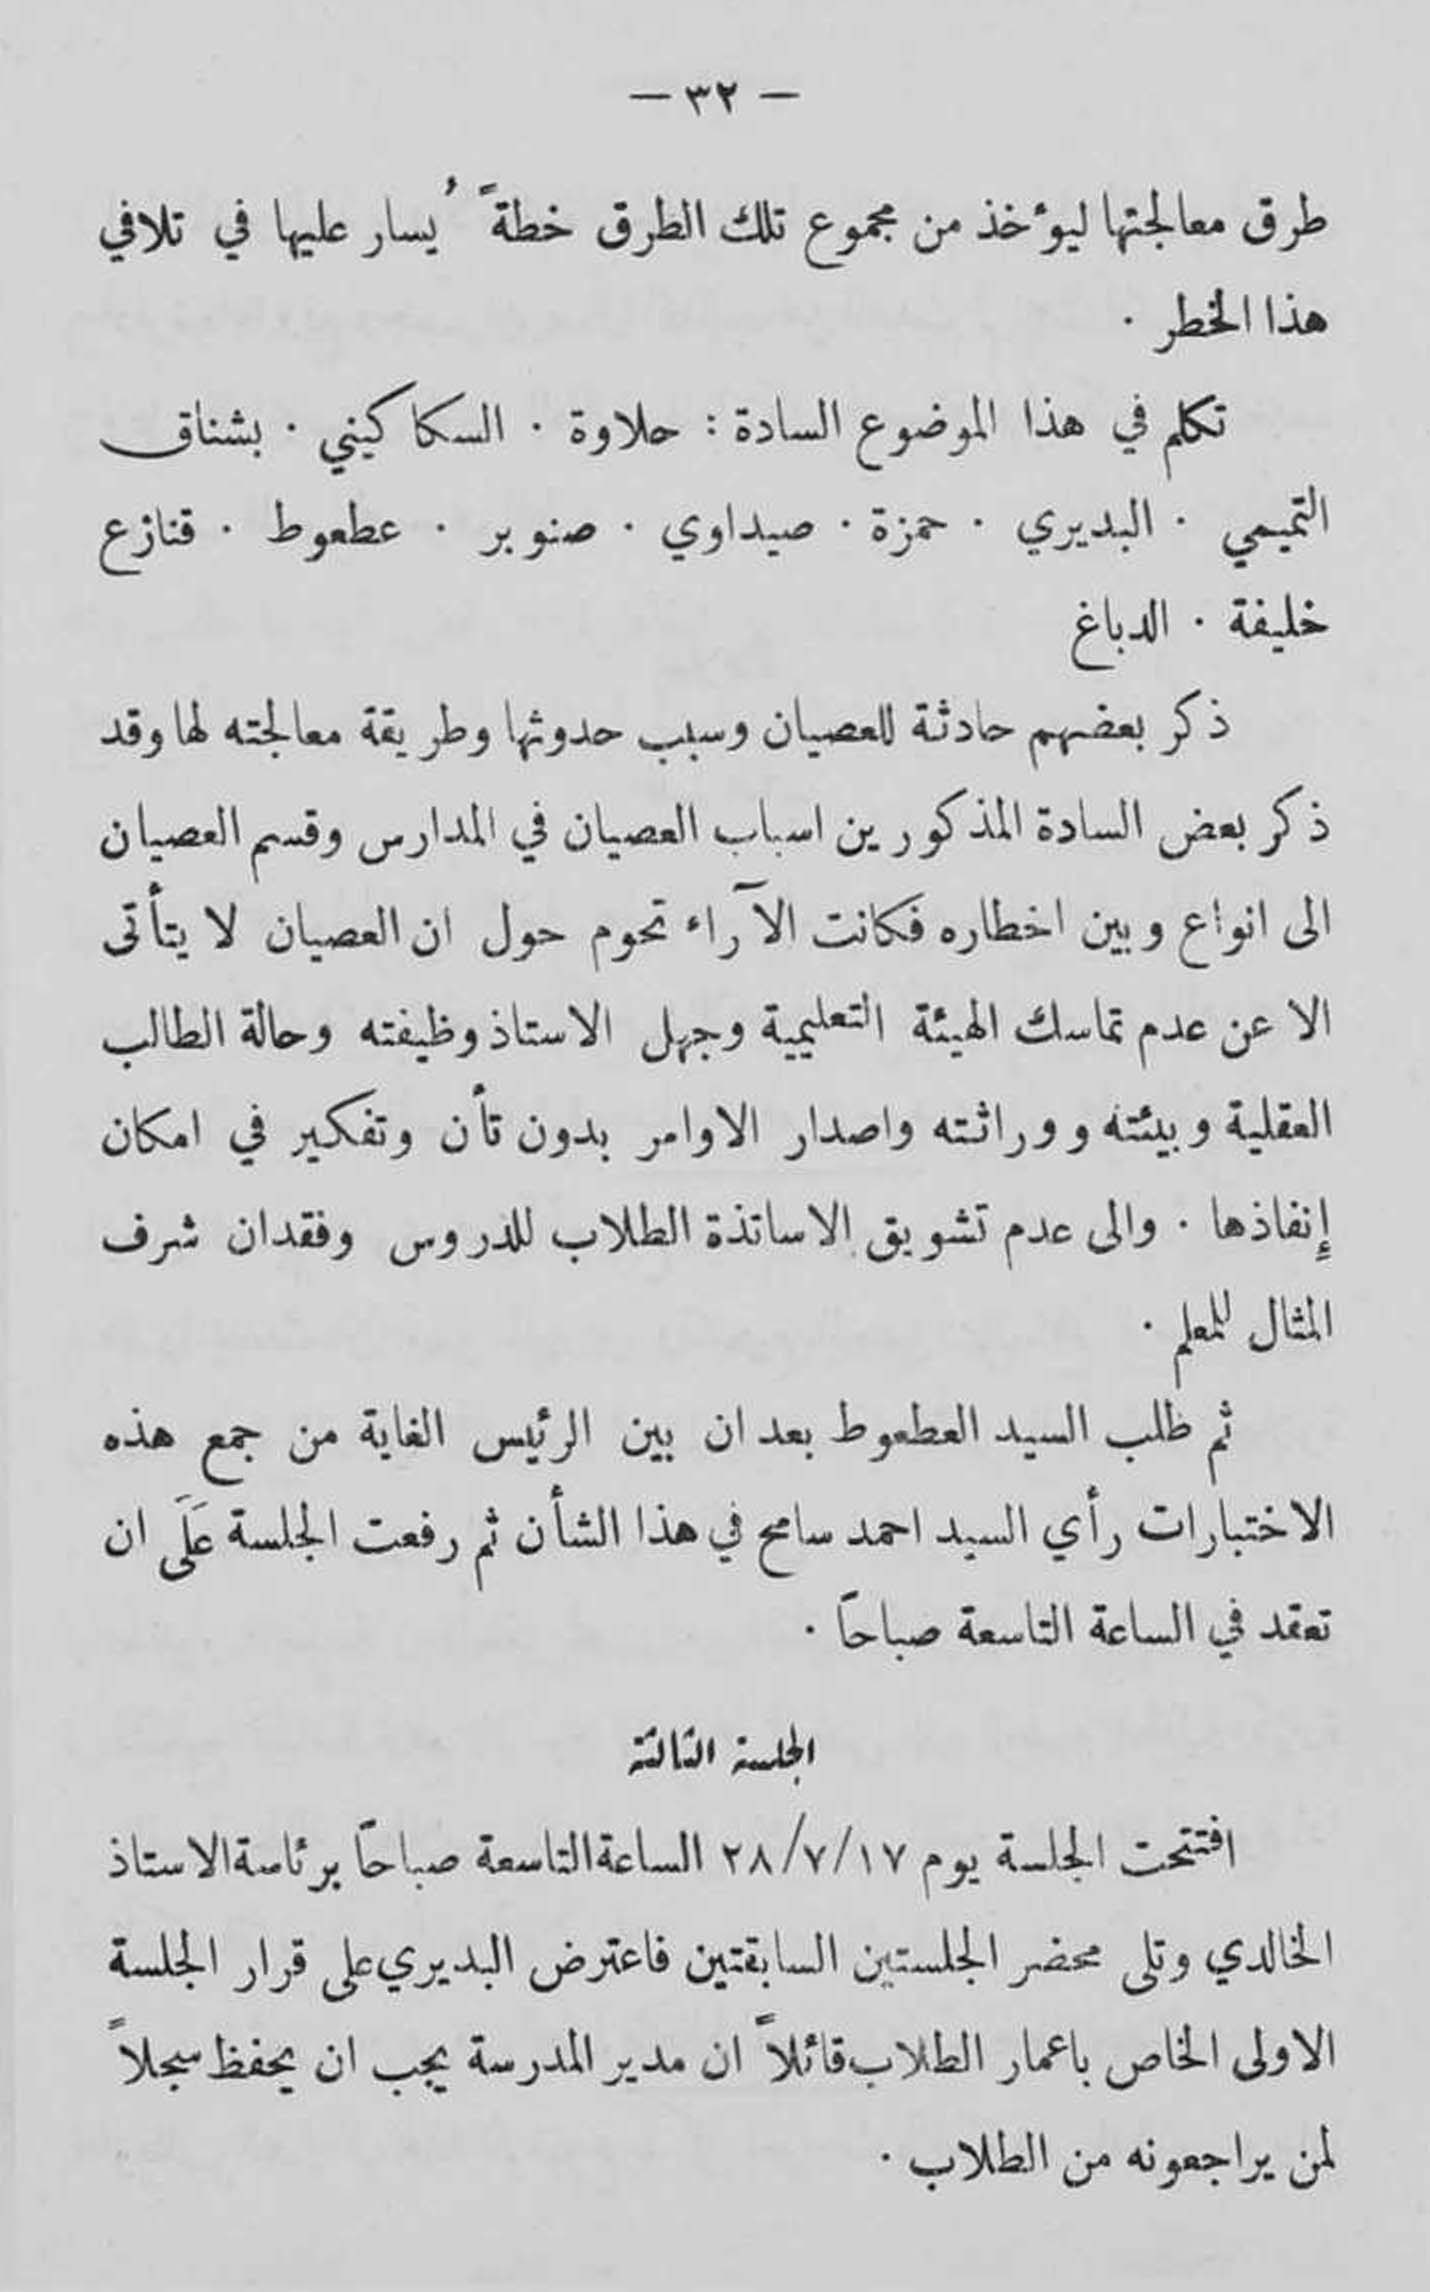 — ٣٢ —
طرق معالجتها ليؤخذ من مجموع تلك الطرق خطةً يُسار عليها في تلافي
هذا الخطر .
تكلم في هذا الموضوع السادة : حلاوة . السكاكيني . بشناق
التميمي . البديري . حمزة . صيداوي . صنوبر . عطعوط . قنازع
خليفة . الدباغ
ذكر بعضهم حادثة للعصيان وسبب حدوثها وطريقة معالجته لها وقد
ذكر بعض السادة المذكورين اسباب العصيان في المدارس وقسم العصيان
الى انواع وبين اخطاره فكانت الآراء تحوم حول ان العصيان لا يتأتى
الا عن عدم تماسك الهيئة التعليمية وجهل الاستاذ وظيفته وحالة الطالب
العقلية وبيئته ووراثته واصدار الاوامر بدون تأن وتفكير في امكان
إنفاذها . والى عدم تشويق الاساتذة الطلاب للدروس وفقدان شرف
المثال للمعلم .
ثم طلب السيد العطعوط بعد ان بين الرئيس الغاية من جمع هذه
الاختبارات رأي السيد احمد سامح في هذا الشأن ثم رفعت الجلسة عَلَى ان
تعقد في الساعة التاسعة صباحاً .
الجلسة الثالثة
افتتحت الجلسة يوم ٢٨/٧/١٧ الساعة التاسعة صباحاً برئاسة الاستاذ
الخالدي وتلى محضر الجلستين السابقتين فاعترض البديري على قرار الجلسة
الاولى الخاص باعمار الطلاب قائلاً ان مدير المدرسة يجب ان يحفظ سجلاً
لمن يراجعونه من الطلاب .